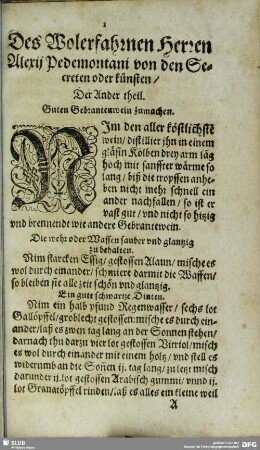 1
Des Wolerfahrnen Herren
Alexij Pedemontani von den Se-
creten oder künsten/
Der Ander theil.
Guten Gebrantenwein zumachen.
NIm den aller köstlichstē
wein/ distillier jhn in einem
gläsin Kolben drey arm läg
hoch mit sanffter wärme so
lang/ biß die tropffen anhe-
ben nicht mehr schnell ein
ander nachfallen/ so ist er
vast gut/ vnd nicht so hitzig
vnd brennendt wie andere Gebrantewein.
Die wehr oder Waffen sauber vnd glantzig
zu behalten.
Nim starcken Essig/ gestossen Alaun/ mische es
wol durch einander/ schmiere darmit die Waffen/
so bleiben sie alle zeit schön vnd glantzig.
Ein gute schwartze Dinten.
Nim ein halb pfund Regenwasser/ sechs lot
Gallöpffel/ groblecht gestossen: mische es durch ein-
ander/ laß es zwen tag lang an der Sonnen stehen/
darnach thu darzu vier lot gestossen Vitriol/ misch
es wol durch einander mit einem holtz/ vnd stell es
widerumb an die Soñen ij. tag lang/ zuletzt misch
darunder ij. lot gestossen Arabisch gummi/ vnnd ij.
lot Granatöpffel rinden/ laß es alles ein kleine weil
A
SLUB
Wir führen Wissen.
DFG